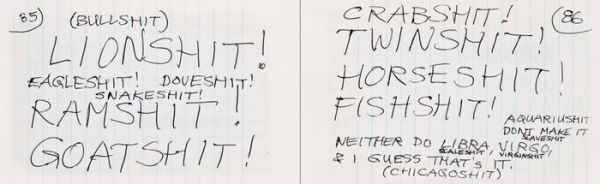 85)
(BULLSHIT)
LIONSHIT!
EAGLESHIT! DOVESHIT!
SNAKESHIT!
RAMSHIT!
GOATSHIT!
86
CRABSHIT!
TWINSHIT!
HORSESHIT!
FISHSHIT!
AQUARIUSHIT
DONT MAKE IT
SLAVESHIT
NEITHER DO LIBRA, VIRGO,
SCALESHIT, VIRGINSHIT
& I GUESS THAT'S IT.
(CHICAGOSHIT)